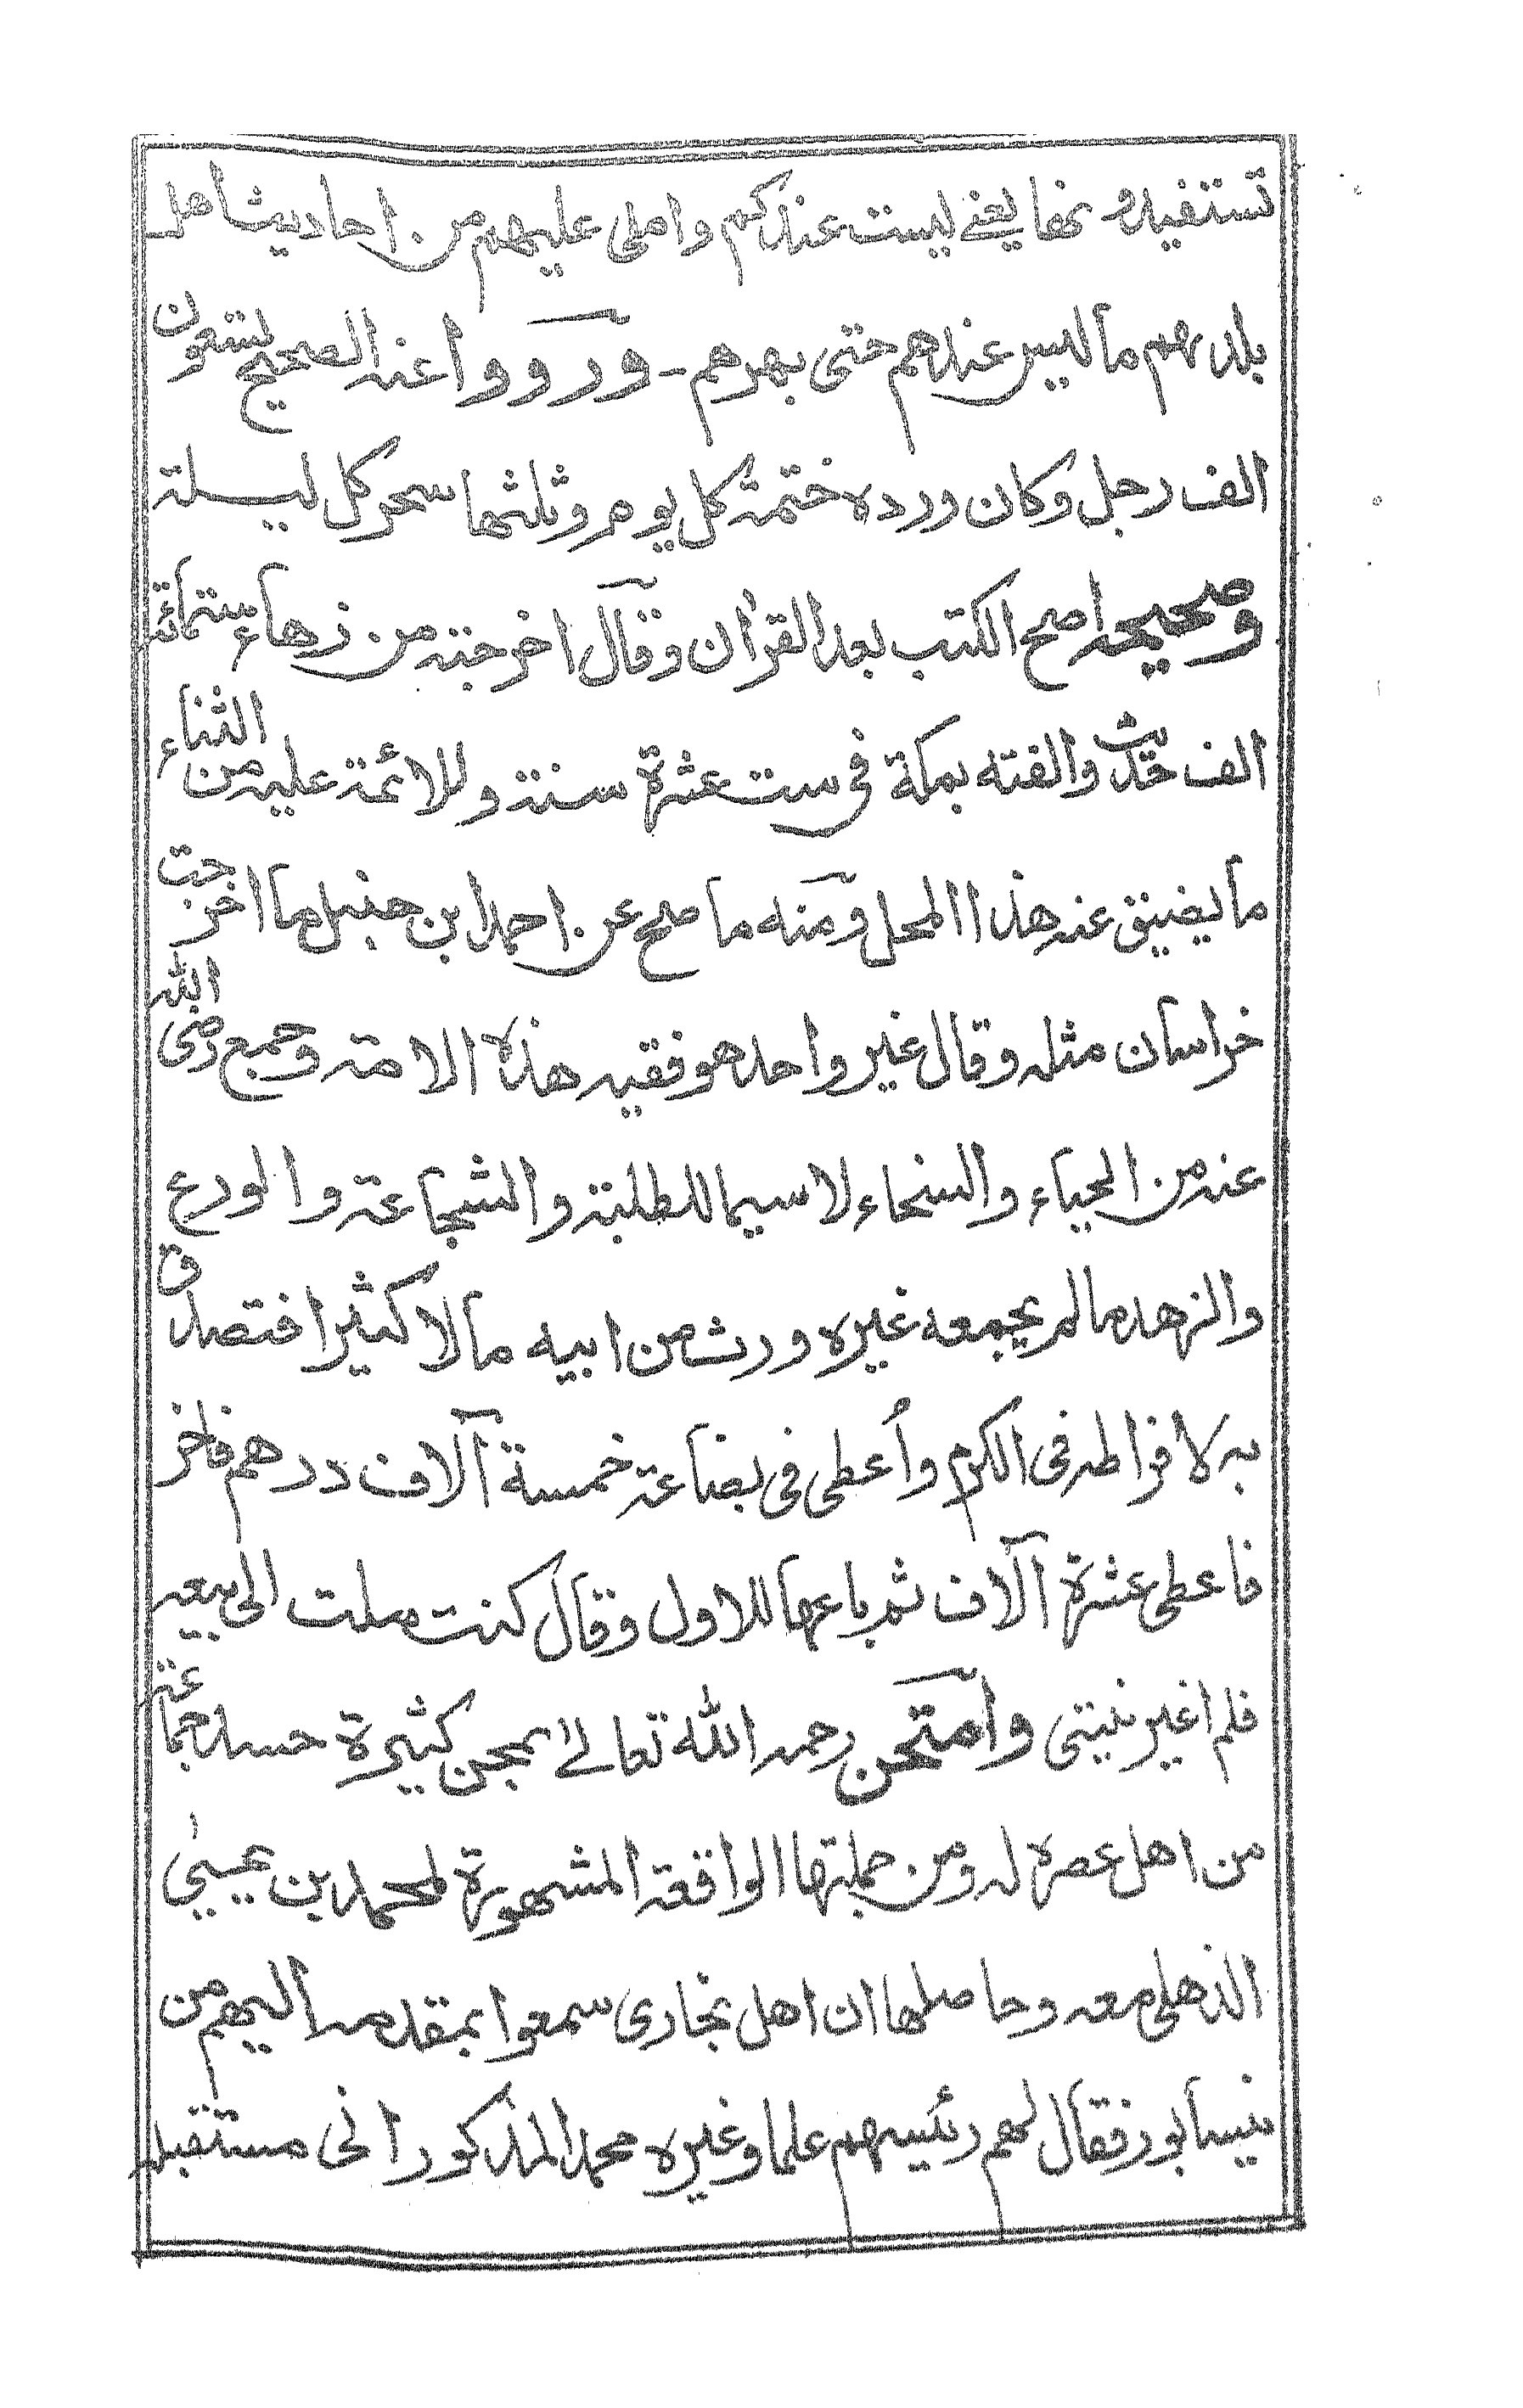 تستفيدونها يعنے ليست عندكم واملى عليهم من احاديث اهل
بلدهم ما ليس عندهم حتى بهرهم ـ ورووا عنه الصحيح تسعون
الف رجل وكان ورده ختمة كل يوم وثلثها سحر كل ليلة
وصحيحه اصح الكتب بعد القران وقال اخرجته من زهاء ستمائة
الف حديث والفته بمكة فى ست عشرة سنة وللائمة عليه من الثناء
ما يضيق عنه هذا المحل ومنه ما صح عن احمد ابن حنبل ما اخرجت
خراسان مثله وقال غير واحد هو فقيه هذه الامة وجمع رضى الله
عنه من الحياء والسخاء لا سيما للطلبة والشجاعة والورع
والزهد ما لم يجمعه غيره ورث من ابيه مالا كثيرا فتصدق
به لافراطه فى الكرم وأعطى فى بضاعة خمسة آلاف درهم فاخر
فاعطى عشرة آلاف ثم باعها للاول وقال كنت ملت الى بيعه
فلم اغير نيتى وامتحن رحمه الله تعالىٰ بمحن كثيرة حسد جماعة
من اهل عصره له ومن جملتها الواقعة المشهورة لمحمد بن يحيىٰ
الذهلى معه وحاصلها ان اهل بخارى سمعوا بمقدمه اليهم من
نيسابور فقال لهم رئيسهم علما وغيره محمد المذكور انى مستقبله